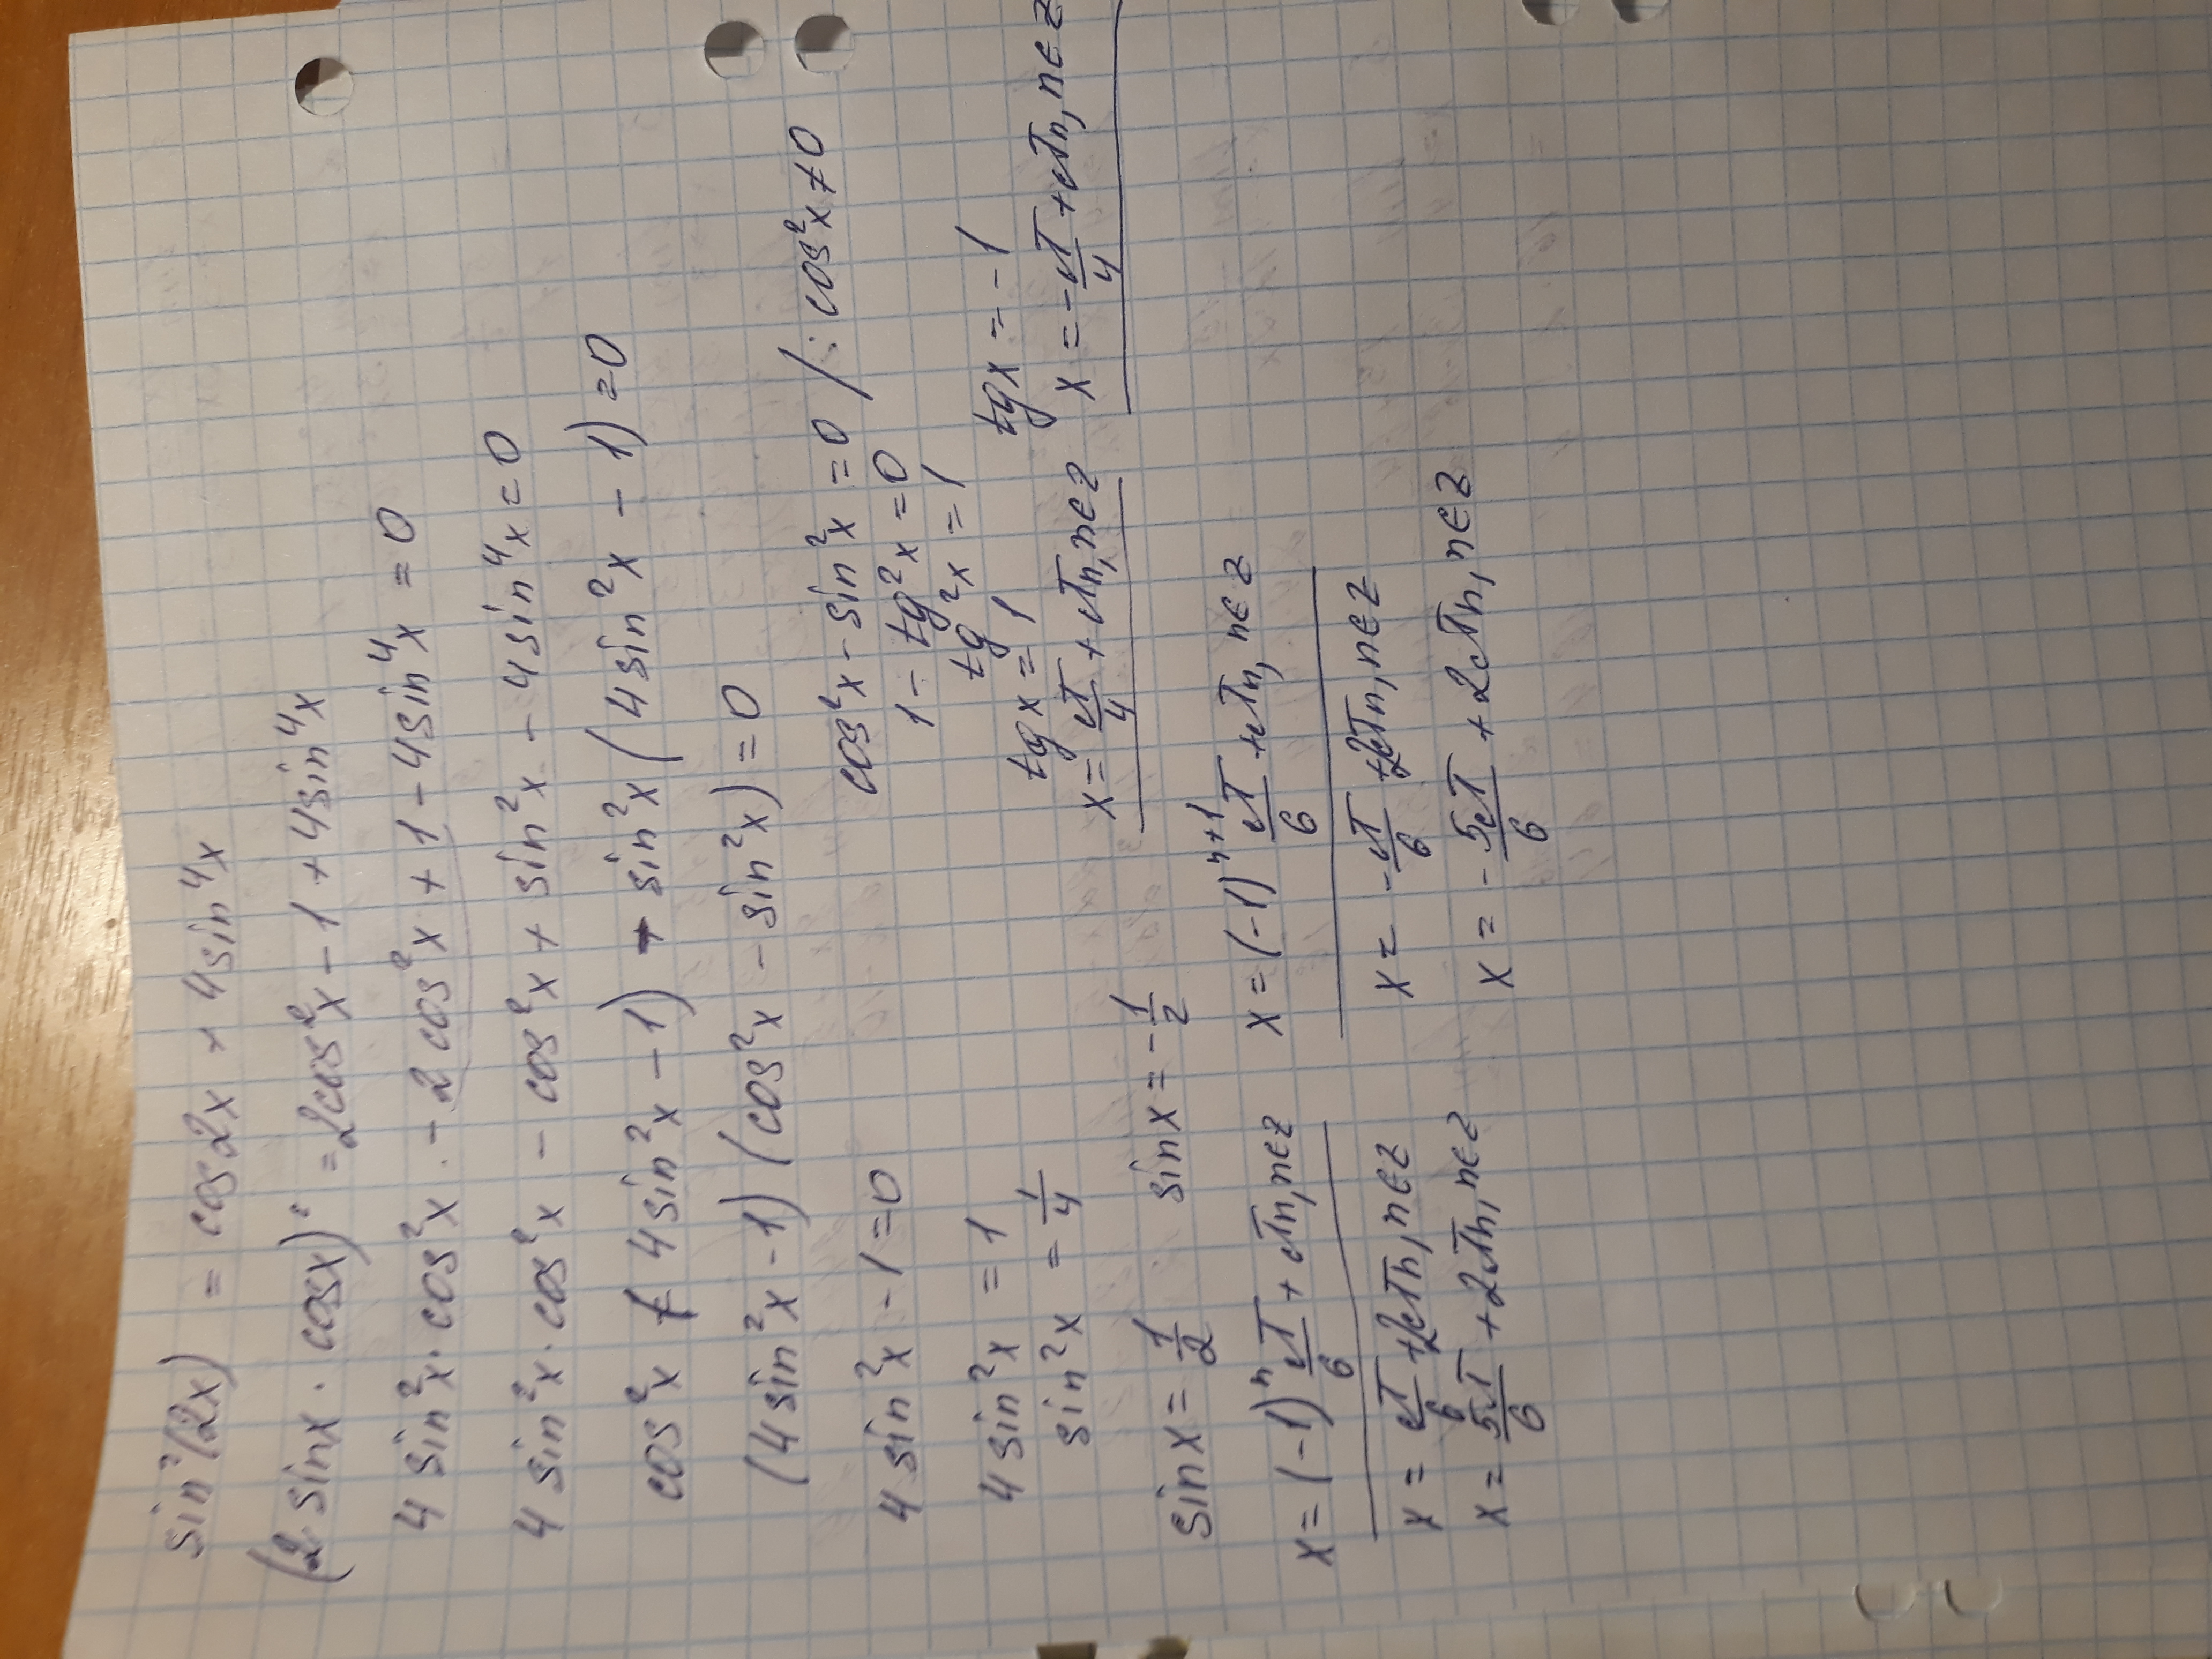 sin²(2x) = cos2x + 4sin⁴x
(2 sinx · cosx)² = 2cos²x - 1 + 4sin⁴x
4 sin²x · cos²x - 2 cos²x + 1 - 4sin⁴x = 0
4 sin²x · cos²x - cos²x + sin²x - 4sin⁴x = 0
cos²x (4sin²x - 1) - sin²x (4sin²x - 1) = 0
(4sin²x - 1) (cos²x - sin²x) = 0
4sin²x - 1 = 0
4sin²x = 1
sin²x = 1/4
sinx = 1/2 sinx = -1/2
x = (-1)ⁿ π/6 + πn, n∈z x = (-1)ⁿ⁺¹ π/6 + πn, n∈z
x = π/6 + 2πn, n∈z x = -π/6 + 2πn, n∈z
x = 5π/6 + 2πn, n∈z x = -5π/6 + 2πn, n∈z
cos²x - sin²x = 0 /: cos²x ≠ 0
1 - tg²x = 0
tg²x = 1
tgx = 1 tgx = -1
x = π/4 + πn, n∈z x = -π/4 + πn, n∈z